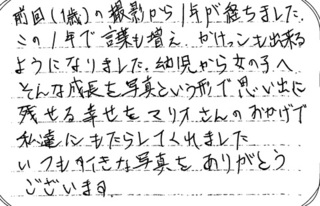 前回(1歳)の撮影から1年が経ちました。
この1年で言葉も増え、かけっこも出来る
ようになりました。幼児から女の子へ
そんな成長を写真という形で思い出に
残せる幸せをマリオさんのおかげで
私達にもたらしてくれました
いつもすてきな写真をありがとう
ございます。